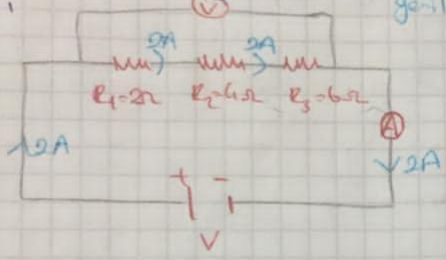 V
2A 2A
R₁=2Ω R₂=4Ω R₃=6Ω
A
2A 2A
+ -
V